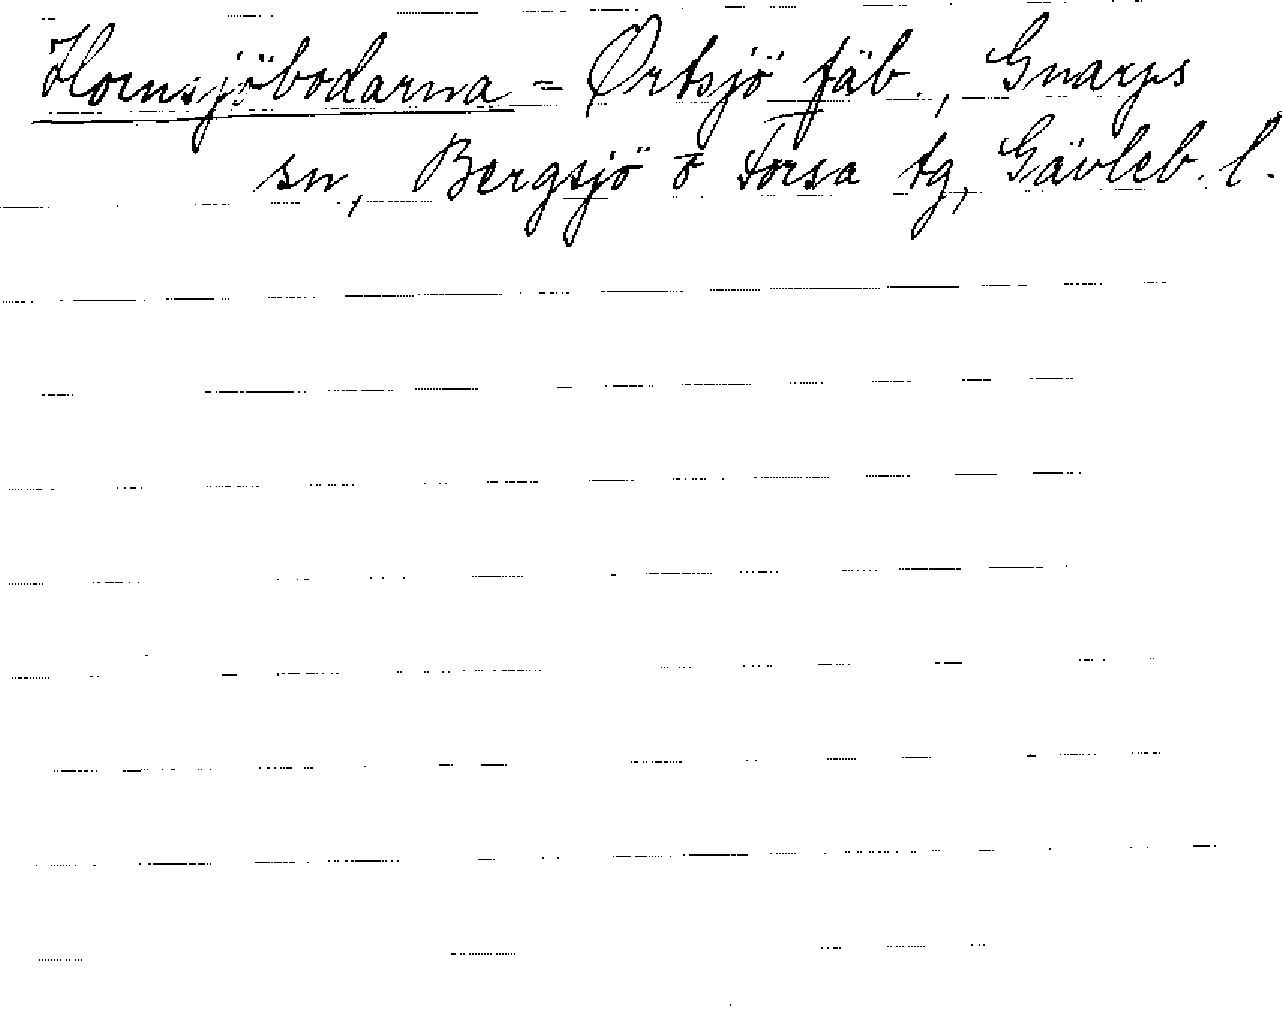 Hornsjöbodarna = Örtsjö fäb., Gnarps
sn, Bergsjö o Forsa tg, Gävleb. l.